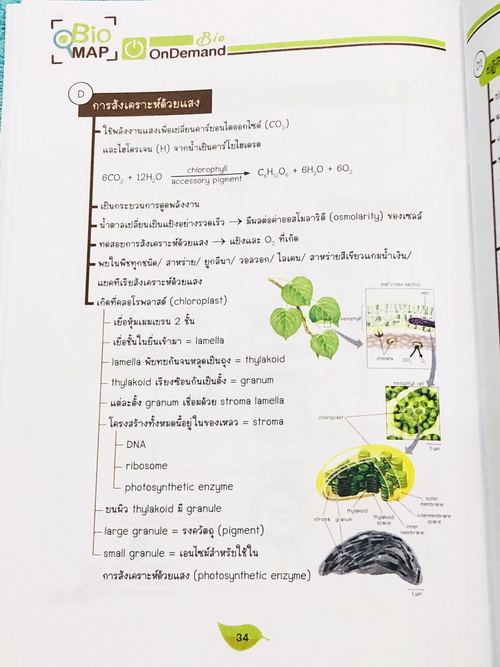 Bio
MAP
Bio
OnDemand
D
การสังเคราะห์ด้วยแสง
ใช้พลังงานแสงเพื่อเปลี่ยนคาร์บอนไดออกไซด์ (CO₂)
และไฮโดรเจน (H) จากน้ำเป็นคาร์โบไฮเดรต
6CO₂ + 12H₂O chlorophyll accessory pigment → C₆H₁₂O₆ + 6H₂O + 6O₂
เป็นกระบวนการดูดพลังงาน
น้ำตาลเปลี่ยนเป็นแป้งอย่างรวดเร็ว → มีผลต่อค่าออสโมลาริตี (osmolarity) ของเซลล์
ทดสอบการสังเคราะห์ด้วยแสง → แป้งและ O₂ ที่เกิด
พบในพืชทุกชนิด/ สาหร่าย/ ยูกลีนา/ วอลวอก/ ไลเคน/ สาหร่ายสีเขียวแกมน้ำเงิน/
แบคทีเรียสังเคราะห์ด้วยแสง
เกิดที่คลอโรพลาสต์ (chloroplast)
เยื่อหุ้มเมมเบรน 2 ชั้น
เยื่อชั้นในยื่นเข้ามา = lamella
lamella พับทยกันจนหลุดเป็นถุง = thylakoid
thylakoid เรียงซ้อนกันเป็นตั้ง = granum
แต่ละตั้ง granum เชื่อมด้วย stroma lamella
โครงสร้างทั้งหมดนี้อยู่ในของเหลว = stroma
DNA
ribosome
photosynthetic enzyme
บนผิว thylakoid มี granule
large granule = รงควัตถุ (pigment)
small granule = เอนไซม์สำหรับใช้ใน
การสังเคราะห์ด้วยแสง (photosynthetic enzyme)
leaf cross section
vein
mesophyll
stomata
CO₂
O₂
mesophyll cell
chloroplast
5 µm
outer
membrane
thylakoid
intermembrane
space
stroma
granum
thylakoid
space
inner
membrane
1 µm
34